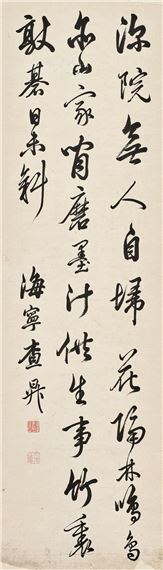 深院無人自埽花隔林鳴鳥
亦山家閒磨墨汁供生事竹裏
敲棊日未斜
海寧查昇